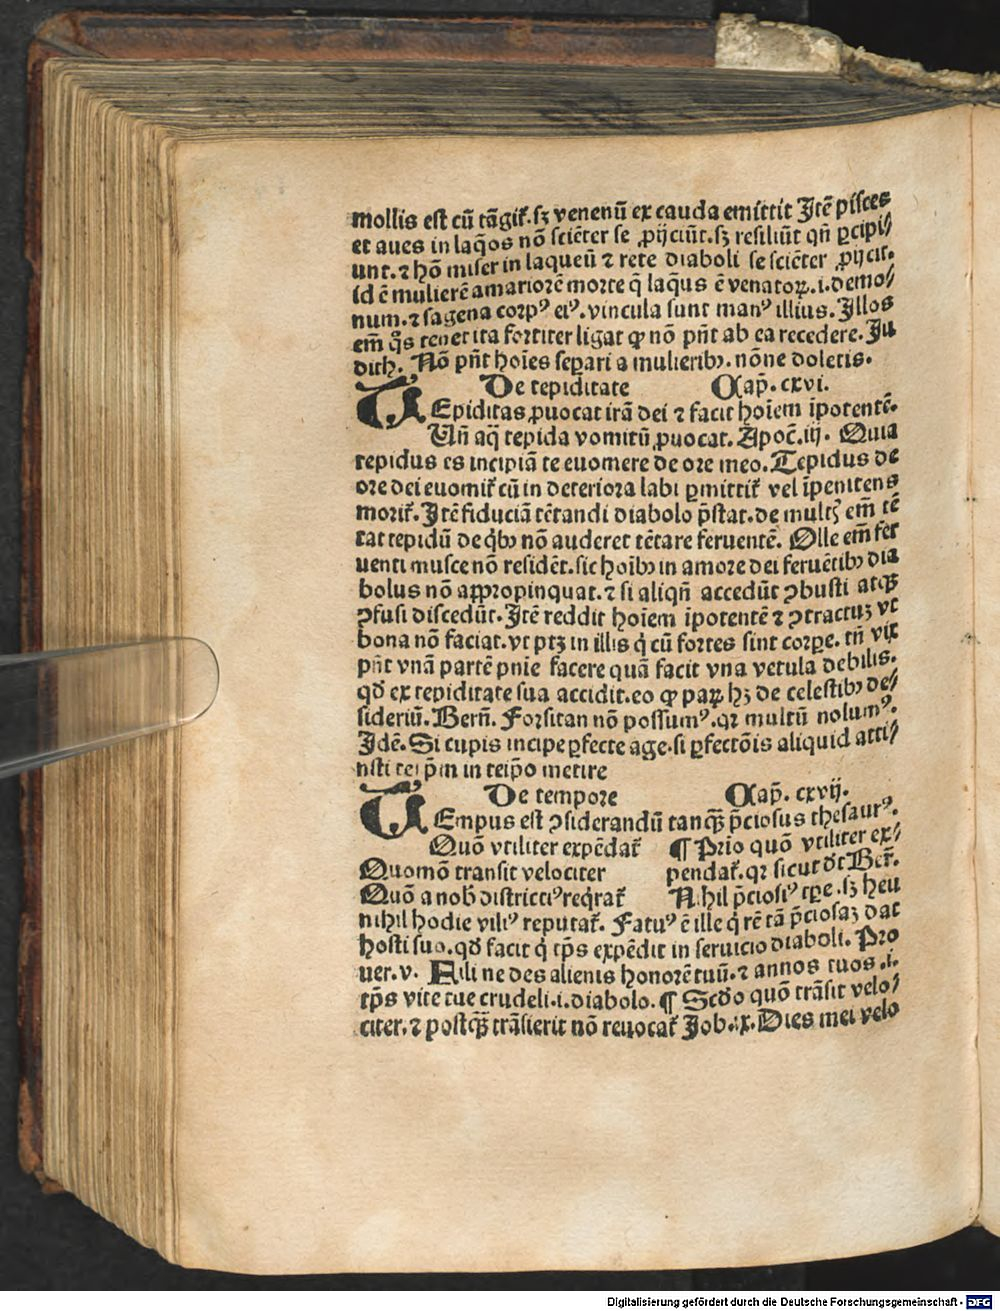 mollis est cū tāgiť. sꝫ venenū ex cauda emittit Jtē pisces
et aues in laq̄os nō sciēter se ꝓijciūt. sꝫ resiliūt qn̄ ꝑcipi⸗
unt. ⁊ hō miser in laqueū ⁊ rete diaboli se sciēter ꝓijcit.
Id ē mulierē amariorē morte q̄ laq̄us ē venatoꝝ. i. demo⸗
num. ⁊ sagena corpꝰ eiꝰ. vincula sunt manꝰ illius. Illos
em̄ q̄s tenet ita fortiter ligat ꝙ nō pn̄t ab ea recedere. Ju
dith. Nō pn̄t hoīes seꝑari a mulieribꝫ. nōne doletis.
De tepiditate Cap̄. cxvi.
TEpiditas ꝓuocat irā dei ⁊ facit hoīem īpotentē.
Vn̄ aq̄ tepida vomitū ꝓuocat. Apoc̄. iij. Quia
tepidus es incipiā te euomere de ore meo. Tepidus de
ore dei euomiť cū in deteriora labi ꝑmittiť vel īpenitens
moriť. Jtē fiduciā tētandi diabolo p̄stat. de multꝭ em̄ tē
tat tepidū de q̇bꝫ nō auderet tētare feruentē. Olle em̄ fer
uenti musce nō residēt. sic hoībꝫ in amore dei feruētibꝫ dia
bolus nō appropinquat. ⁊ si aliqn̄ accedūt ꝯbusti atqꝫ
ꝯfusi discedūt. Jtē reddit hoīem īpotentē ⁊ ꝯtractuꝫ vt
bona nō faciat. vt ptꝫ in illis q̇ cū fortes sint corꝑe. tn̄ vix
pn̄t vnā partē pnīe facere quā facit vna vetula debilis.
qd̄ ex tepiditate sua accidit. eo ꝙ paꝝ hꝫ de celestibꝫ de⸗
sideriū. Bern̄. Forsitan nō possumꝰ. qꝛ multū nolumꝰ.
Jdē. Si cupis incipe ꝑfecte age. si ꝑfectōis aliquid atti⸗
nsti teip̄m in teip̄o metire
De tempore Cap̄. cxvij.
TEmpus est ꝯsiderandū tanqꝫ p̄ciosus thesaurꝰ.
Quō vtiliter expēdať ¶ Prio quō vtiliter ex⸗
Quomō transit velociter pendať. qꝛ sicut dt̄ Beř.
Quō a nob̄ districtiꝰ req̇rať Nihil p̄ciosiꝰ tꝑe. sꝫ heu
nihil hodie viliꝰ reputať. Fatuꝰ ē ille q̇ rē tā p̄ciosaꝫ dat
hosti suo. qd̄ facit q̇ tp̄s expēdit in seruicio diaboli. Pro
uer. v. Fili ne des alienis honorē tuū. ⁊ annos tuos .i.
tp̄s vite tue crudeli. i. diabolo. ¶ Scd̄o quō trāsit velo⸗
citer. ⁊ postqꝫ trāsierit nō reuocať Job. ix. Dies mei velo
Digitalisierung gefördert durch die Deutsche Forschungsgemeinschaft - DFG